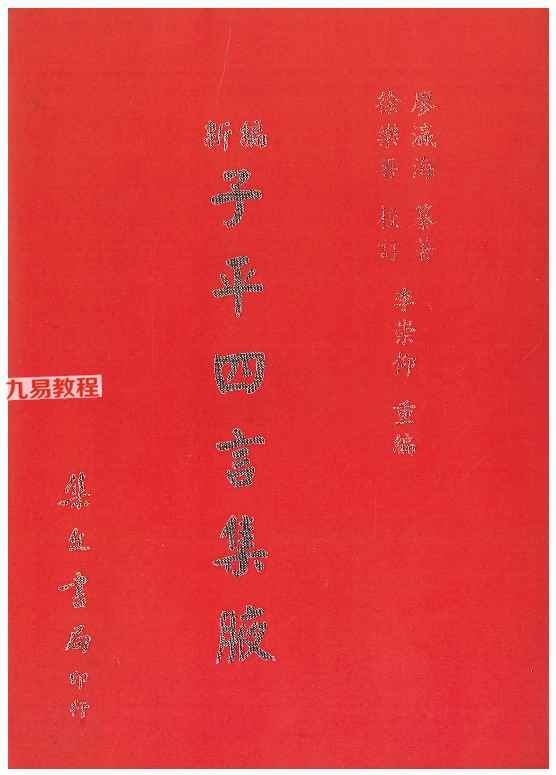 廖瀛海 纂著
徐崇 校訂
李崇仰 重編
新編
子平四言集腋
集文書局印行
九易教程